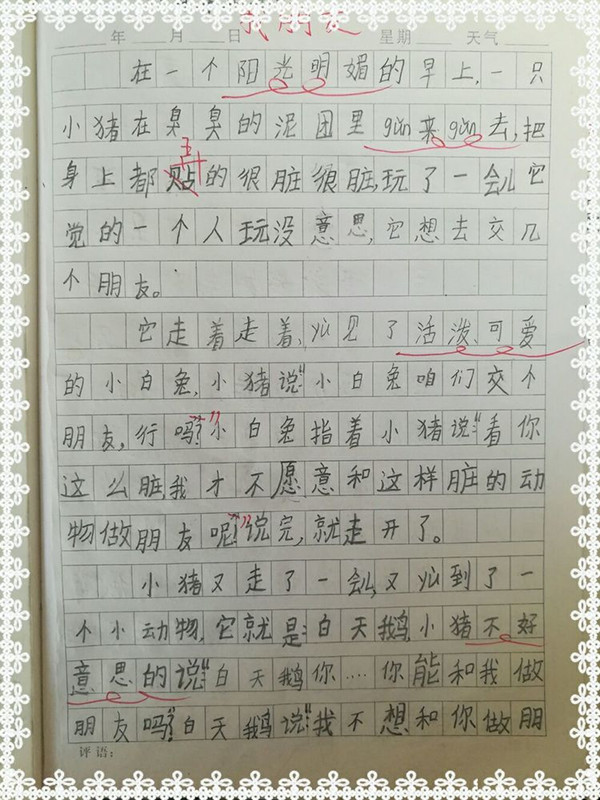 找朋友
年 月 日 星期 天气
在一个阳光明媚的早上,一只
小猪在臭臭的泥团里gǔn来gǔn去,把
身上都弄的很脏很脏,玩了一会儿它
觉的一个人玩没意思,它想去交几
个朋友。
它走着走着,yù见了活泼、可爱
的小白兔,小猪说:“小白兔咱们交个
朋友,行吗?”小白兔指着小猪说:“看你
这么脏,我才不愿意和这样脏的动
物做朋友呢!”说完,就走开了。
小猪又走了一会儿,又yù到了一
个小动物,它就是:白天鹅,小猪不好
意思的说:“白天鹅你····你能和我做
朋友吗?”白天鹅说:“我不想和你做朋
评语: